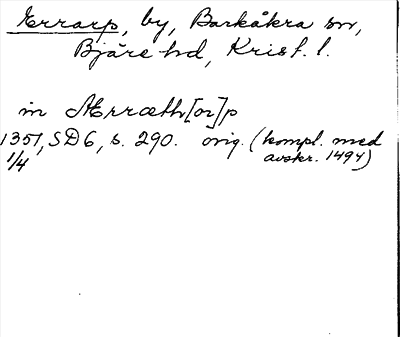 Errarp, by, Barkåkra sn,
Bjäre hd, Krist. l.
in Ærræth[or]p
1351, SD6, s. 290. orig. (kompl. med
1/4 avskr. 1494)